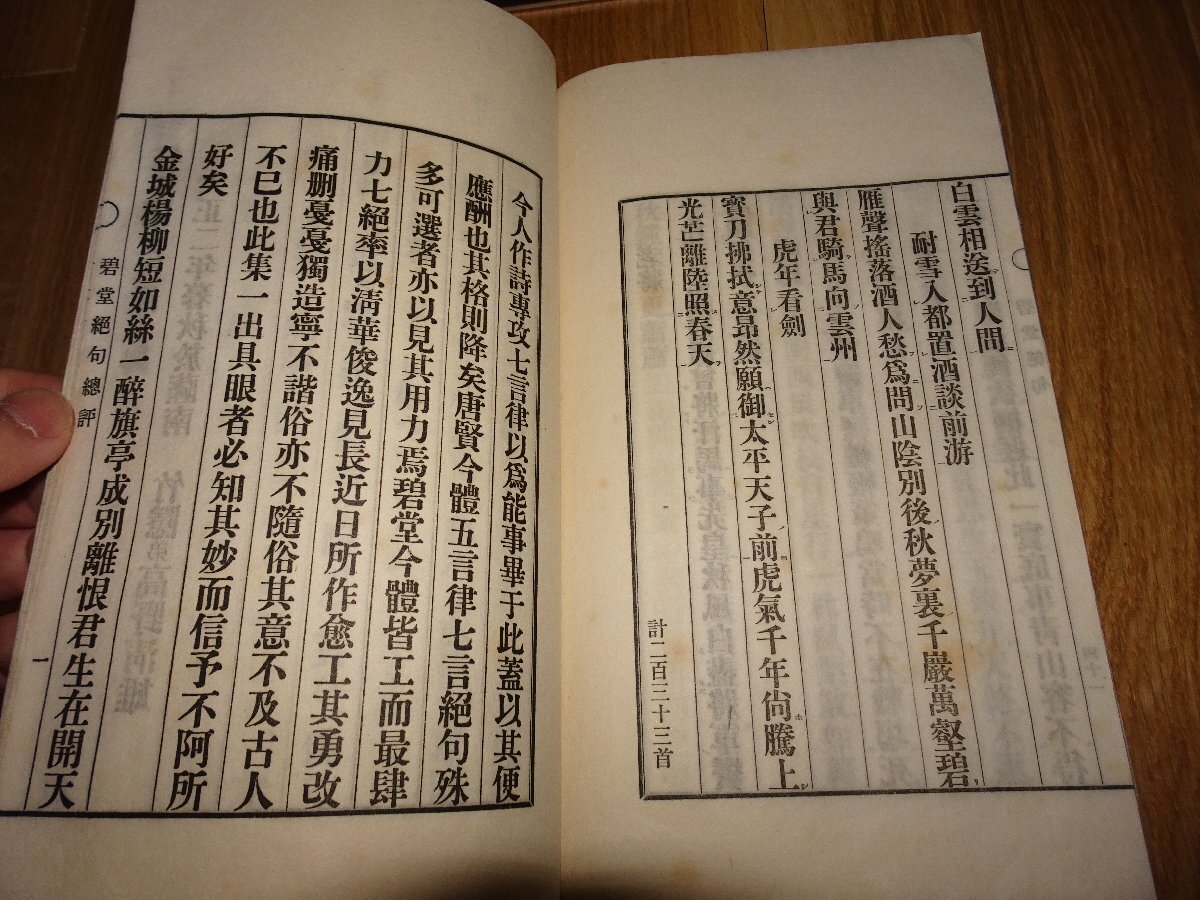 白雲相送到人間
耐雪入都置酒談前游
雁聲搖落酒人愁爲問山陰別後秋夢裏千巖萬壑碧
與君騎馬向雲州
虎年看劍
寶刀拂拭意昂然願御太平天子前虎氣千年尙騰上
光芒離陸照春天
計二百三十三首
今人作詩專攻七言律以爲能事畢于此蓋以其便
應酬也其格則降矣唐賢今體五言律七言絕句殊
多可選者亦以見其用力焉碧堂今體皆工而最肆
力七絕率以淸華俊逸見長近日所作愈工其勇改
痛刪戞戞獨造寧不諧俗亦不隨俗其意不及古人
不已也此集一出具眼者必知其妙而信予不阿所
好矣
金城楊柳短如絲一醉旗亭成別離恨君生在開天
碧堂絕句總評
一